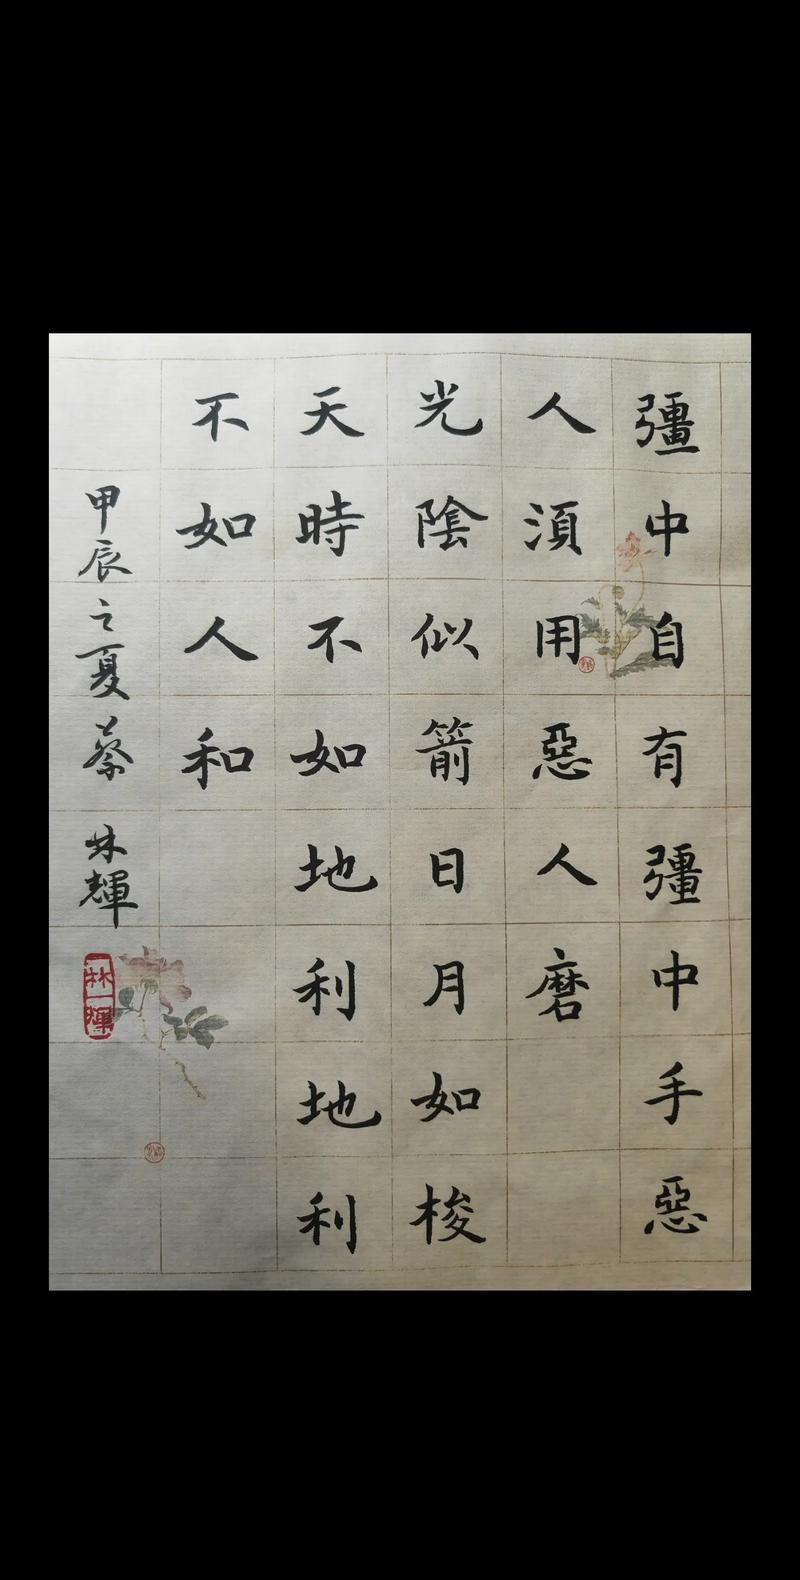 彊中自有彊中手惡
人須用惡人磨
光陰似箭日月如梭
天時不如地利地利
不如人和
甲辰之夏蔡林輝
林輝